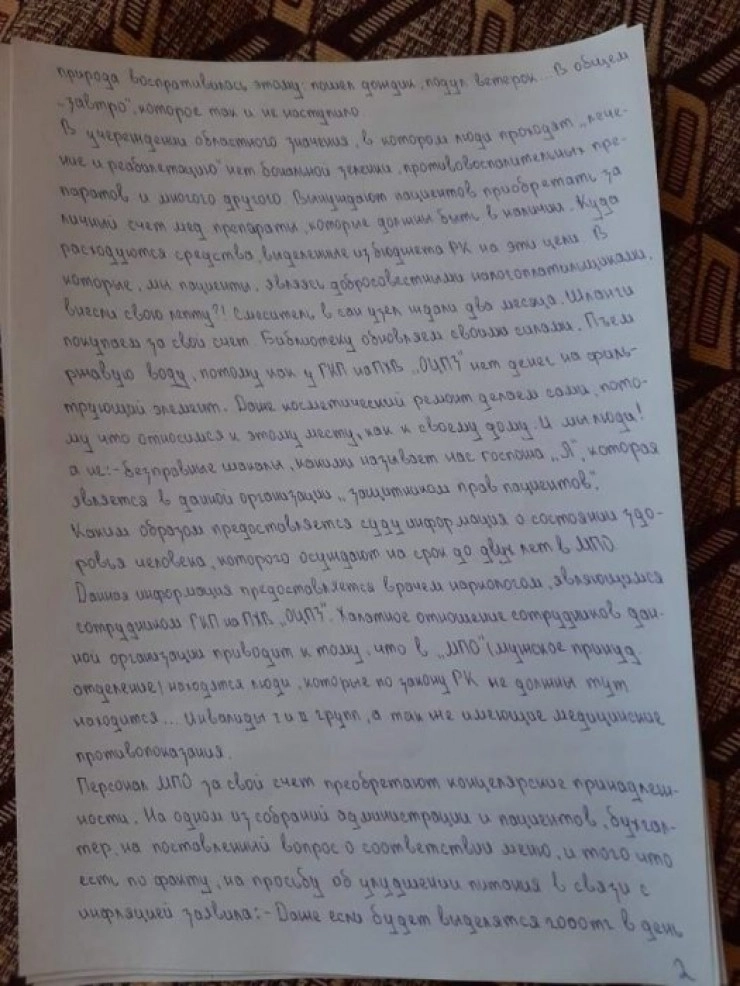 природа воспротивилась этому: пошел дождик, подул ветерок... В общем
„завтро", которое так и не наступило.
В учереждении областного значения, в котором люди проходят „лече-
ние и реабилетацию" нет бональной зеленки, противовоспалительных пре-
паратов и многого другого. Вынуждают пациентов приобретать за
личный счет мед препараты, которые должны быть в наличии. Куда
расходуются средства, выделенные из бюджета РК на эти цели. В
которые, мы пациенты, являясь добросовестными налогоплатильщиками,
внесли свою лепту?! Смеситель в сан узел ждали два месяца. Шланги
покупаем за свой счет. Библиотеку обновляем своими силами. Пъем
ржавую воду, потому как у ГКП на ПХВ „ОЦПЗ" нет денег на филь-
трующий элемент. Даже косметический ремонт делаем сами, пото-
му что относимся к этому месту, как к своему дому. И мы люди!
а не:- безправные шакалы, какими называет нас госпожа „Я", которая
является в данной организации „защитником прав пациентов".
Каким образом предоставляется суду информация о состоянии здо-
ровья человека, которого осуждают на срок до двух лет в МПО
Данная информация предоставляется врачем наркологом, являющимся
сотрудником ГКП на ПХВ „ОЦПЗ". Халатное отношение сотрудников дан-
ной организации приводит к тому, что в „МПО" (мужское принуд.
отделение) находятся люди, которые по закону РК не должны тут
находится... Инвалиды I и II групп, а так же имеющие медицинские
противопоказания.
Персонал МПО за свой счет преобретают концелярские принадлеж-
ности. На одном из собраний администрации и пациентов, бухгал-
тер, на поставленный вопрос о соответствии меню, и того что
есть по факту, на просьбу об улудшении питания в связи с
инфляцией заявила:- Даже если будет выделятся 2000тг в день
2